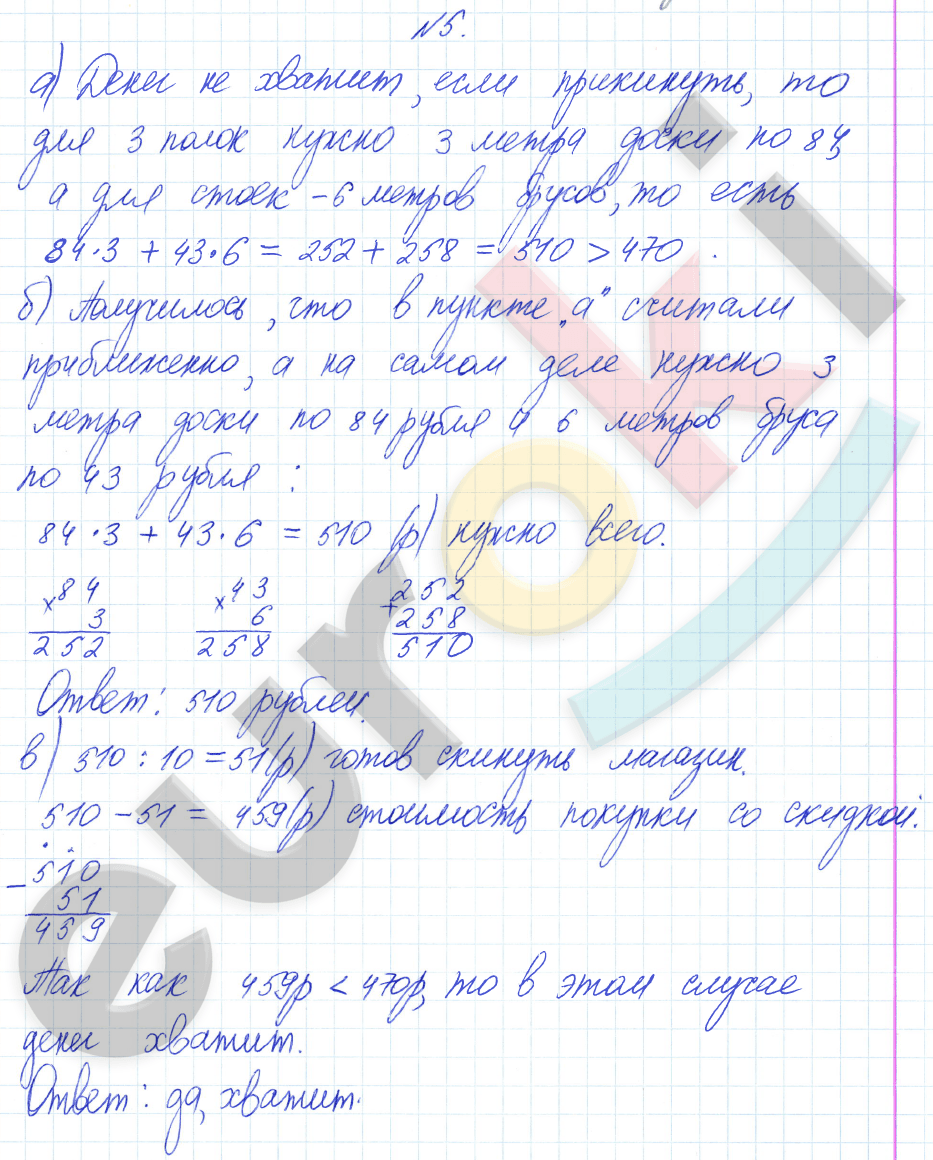 №5.
а) Денег не хватит, если прикинуть, то
для 3 полок нужно 3 метра доски по 84,
а для стоек – 6 метров брусов, то есть
84·3 + 43·6 = 252 + 258 = 510 > 470 .
б) Получилось, что в пункте „а“ считали
приближенно, а на самом деле нужно 3
метра доски по 84 рубля и 6 метров бруса
по 43 рубля :
84·3 + 43·6 = 510 (р) нужно всего.
×84 ×43 +252
3 6 258
252 258 510
Ответ: 510 рублей.
в) 510 : 10 = 51(р) готов скинуть магазин.
510 – 51 = 459(р) стоимость покупки со скидкой.
–510
51
459
Так как 459р < 470р, то в этом случае
денег хватит.
Ответ: да, хватит.
euroki